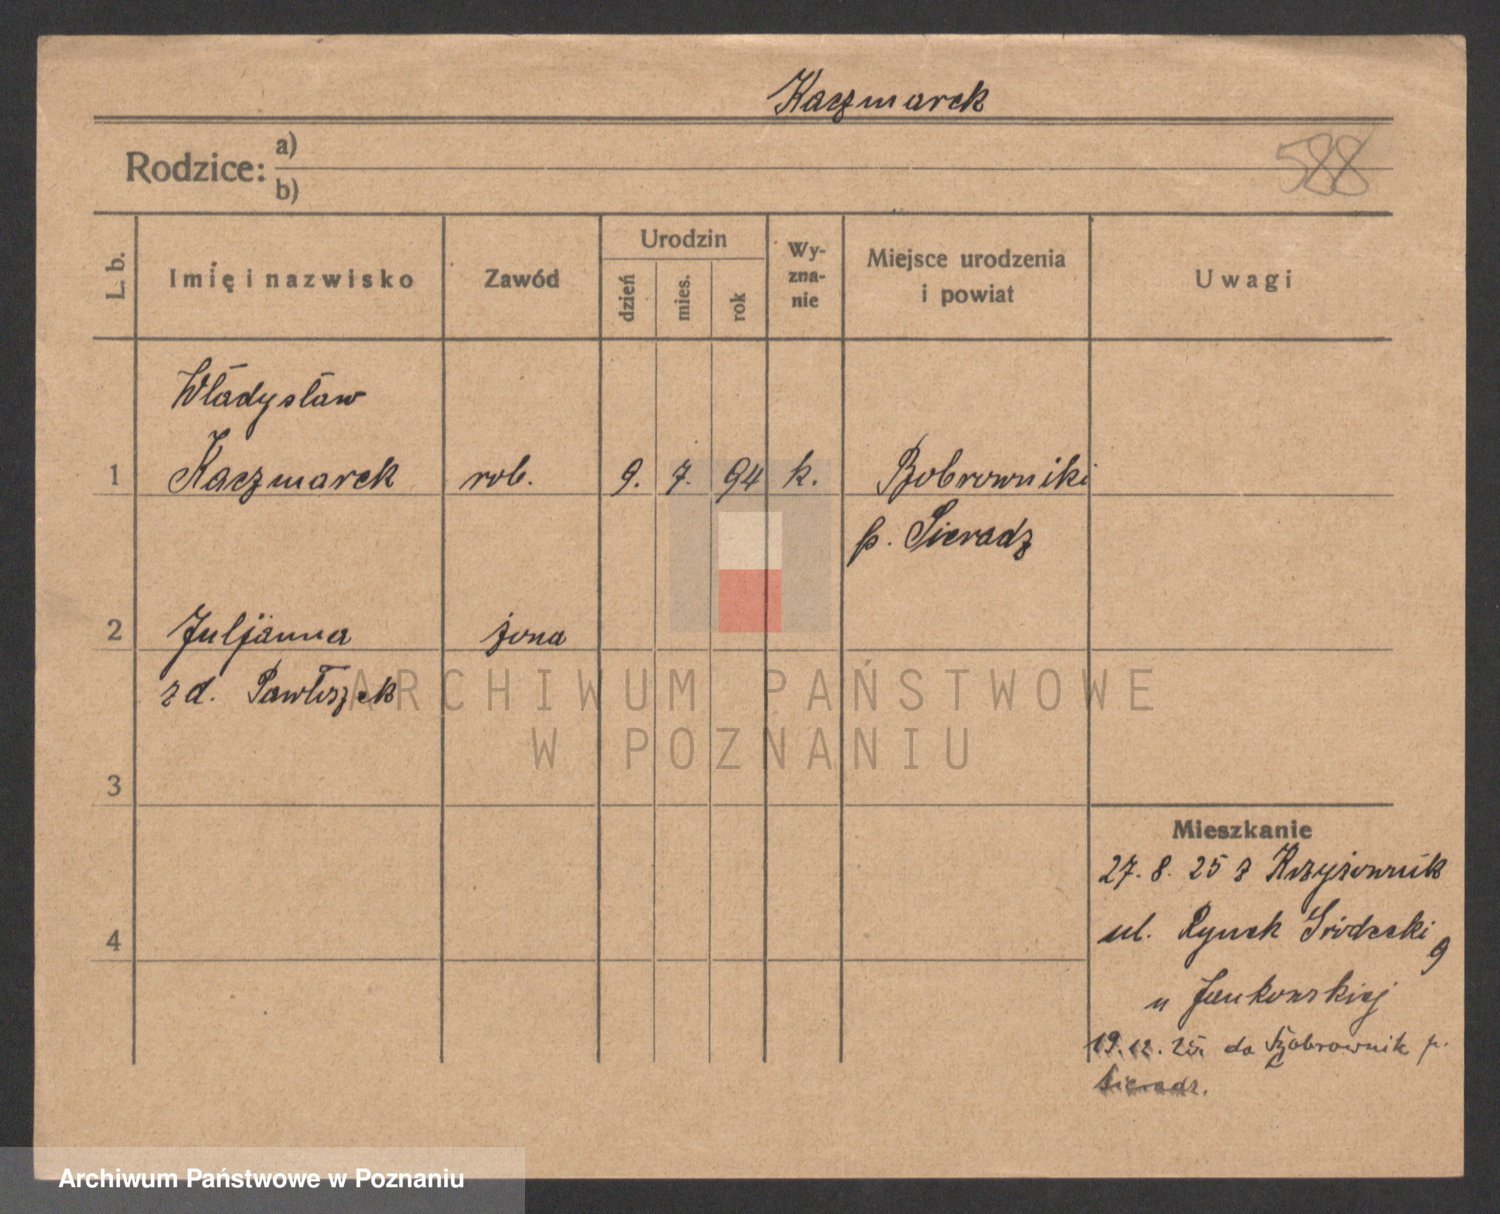 Kaczmarek
588
Rodzice: a)
b)
L. b.
Imię i nazwisko
Zawód
Urodzin
dzień
mies.
rok
Wy-
zna-
nie
Miejsce urodzenia
i powiat
Uwagi
Władysław
1 Kaczmarek rob. 9. 7. 94 k. Bobrowniki
p. Sieradz
2 Juljanna żona
zd. Pawłiszek
ARCHIWUM PAŃSTWOWE
W POZNANIU
3
Mieszkanie
27. 8. 25 z Krzyżownik
4
ul. Rynek Śródecki 9
u Jankowskiej
19.12.25. do Bobrownik p.
Sieradz.
Archiwum Państwowe w Poznaniu